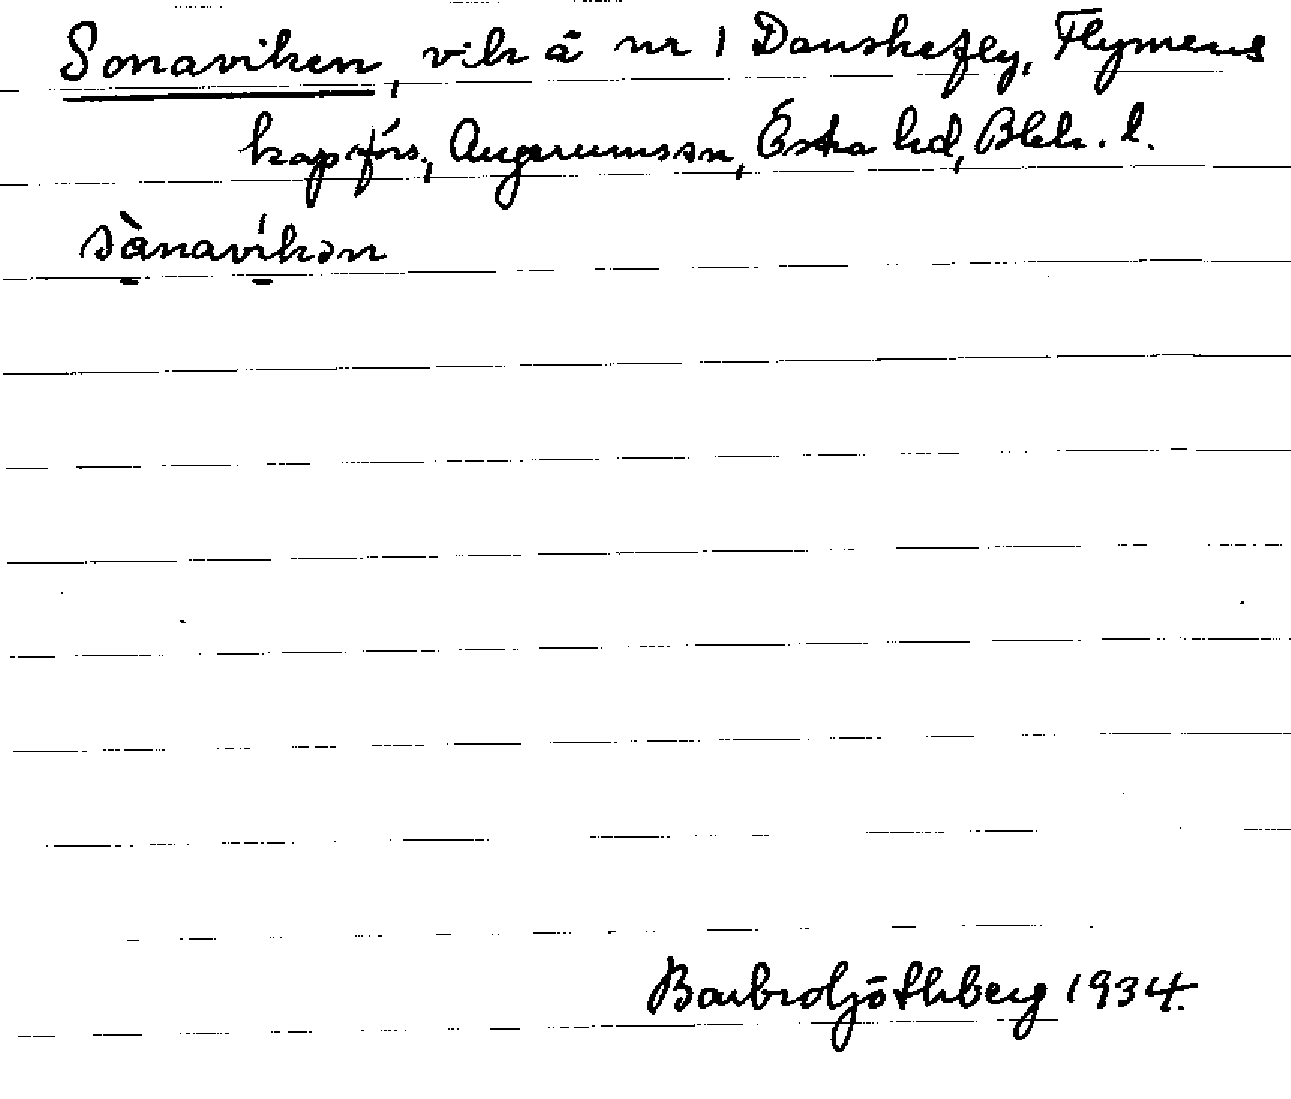 Sonaviken, vik å nr 1 Danskefly, Flymens
kapförs., Augerumssn, Östra hd, Blek. l.
sànavíkən
Barbro Göthberg 1934.